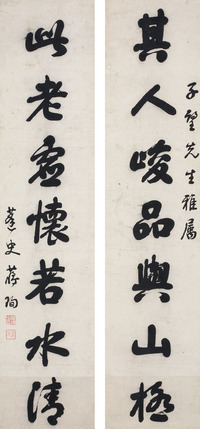 其人峻品與山極
子壁先生雅屬
此老虛懷若水清
蓬史蔣珣